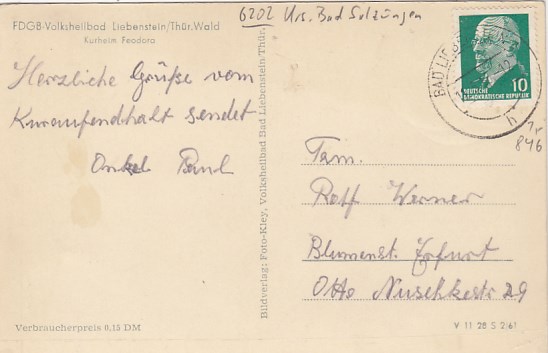 FDGB-Volksheilbad Liebenstein/Thür. Wald
Kurheim Feodora
6202 Krs. Bad Salzungen
Herzliche Grüße vom
Kuraufendhalt sendet
Onkel Paul
Bildverlag: Foto-Kley, Volksheilbad Bad Liebenstein/Thür.
BAD LIEBENSTEIN
h
10
DEUTSCHE
DEMOKRATISCHE REPUBLIK
846
Fam.
Rolf Werner
Blumenst. Erfurt
Otto Nuschkestr 29
Verbraucherpreis 0,15 DM
V 11 28 S 2/61